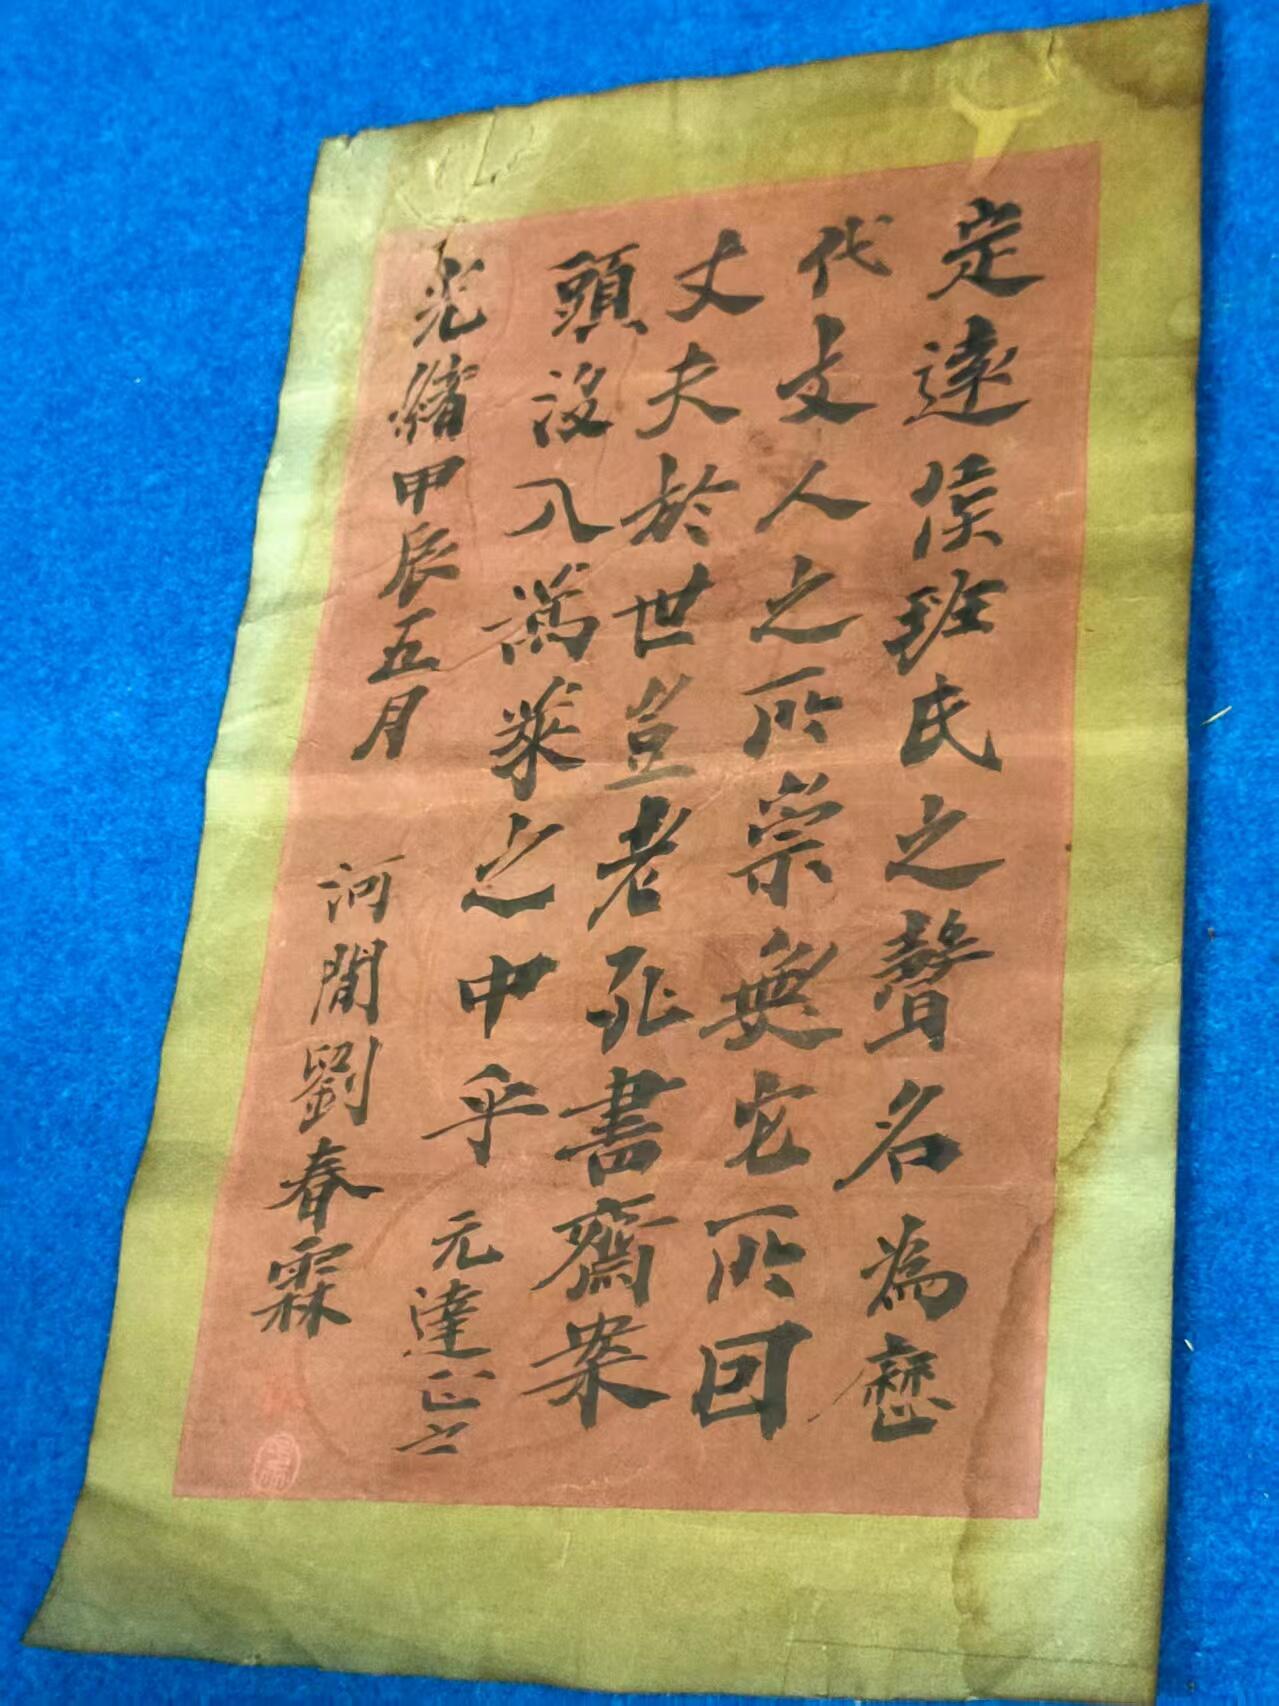 定遠侯班氏之聲名為歷
代文人之所崇無它所回
丈夫於世豈老死書齋案
頭沒入蒿萊之中乎
元達正之
光緒甲辰五月
河間劉春霖